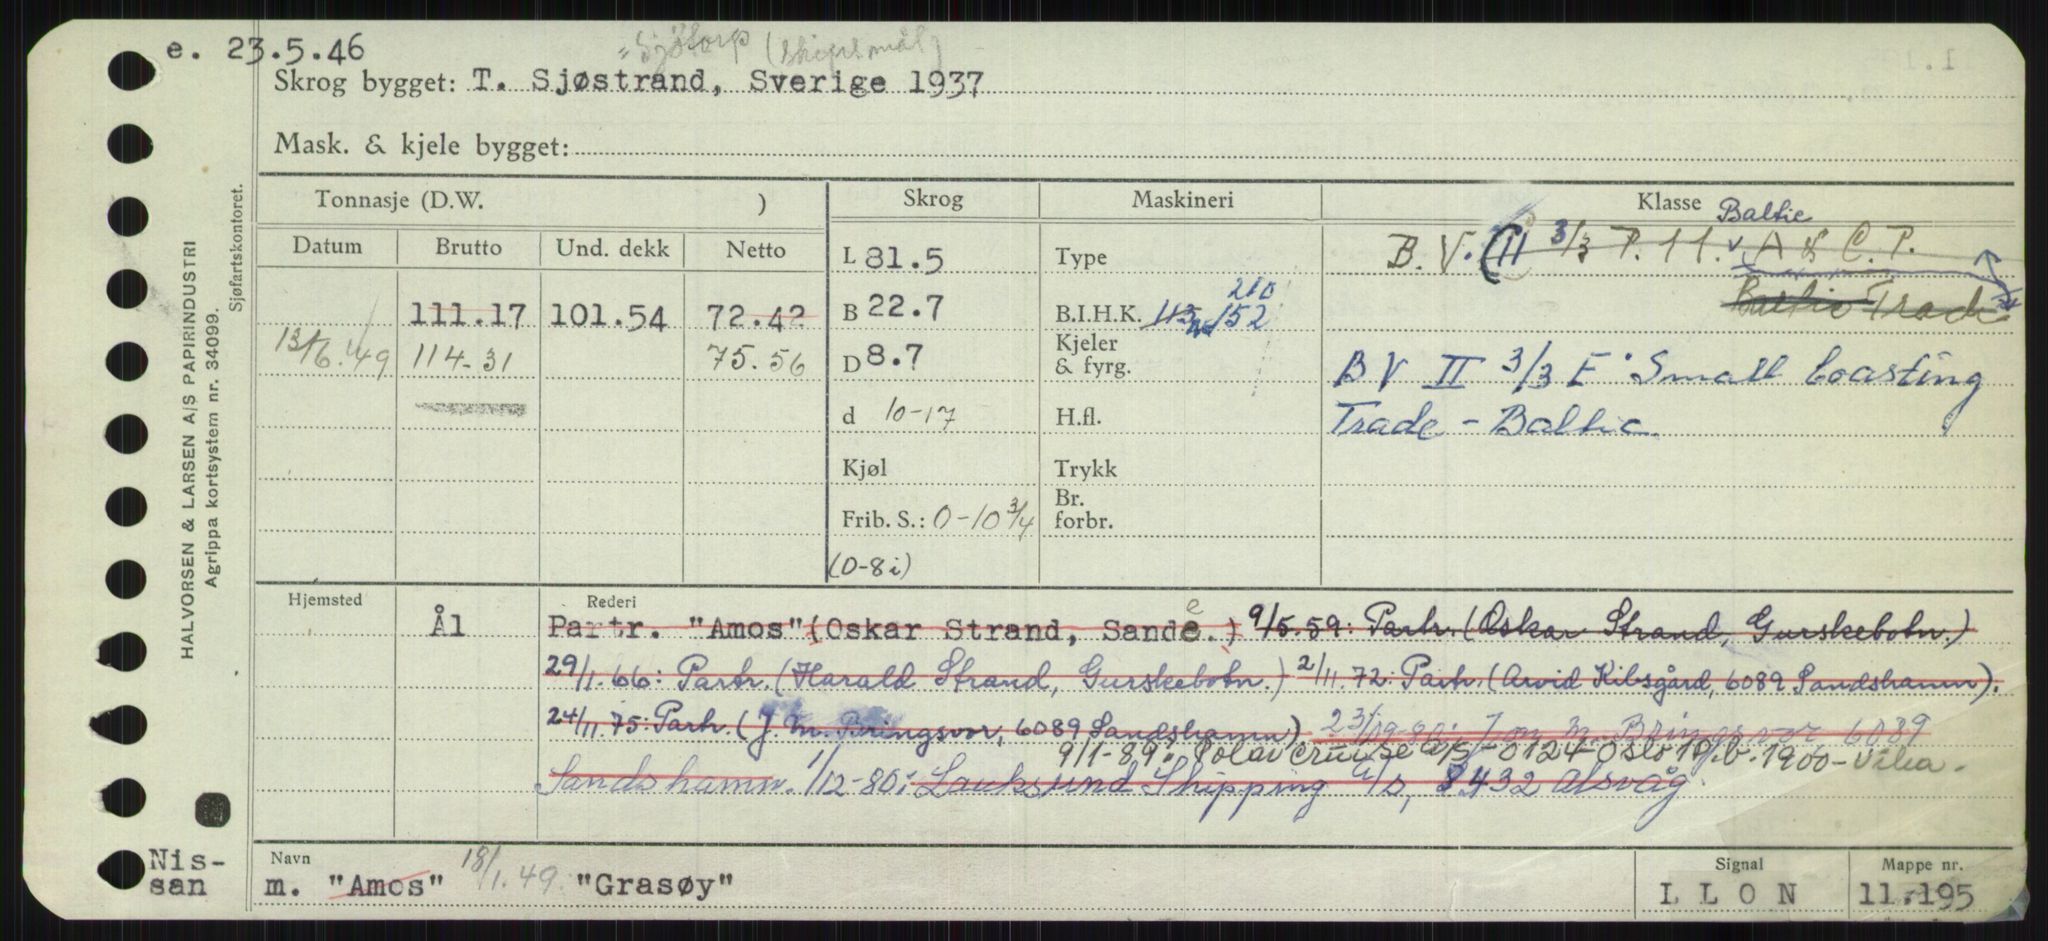 e. 23.5.46
"Sjötorp (skipsmål)
Skrog bygget: T. Sjøstrand, Sverige 1937
Mask. & kjele bygget:
Tonnasje (D.W. ) Skrog Maskineri Klasse
Datum Brutto Und. dekk Netto
L 81.5 Type
Baltic
B.V. (II 3/3 P. 1 1. v A & C.P.
Baltic Trade
111.17 101.54 72.42 B 22.7 B.I.H.K. 113 152 210
13/6.49 114.31 75.56 D 8.7 Kjeler & fyrg.
BV II 3/3 E Small Coasting
Trade - Baltic
d 10-17 H.fl.
Kjøl Trykk
Frib. S.: 0-10 3/4 Br. forbr.
(0-8 i)
Hjemsted Ål Rederi
Partr. "Amos" (Oskar Strand, Sande.) 9/5.59: Partr. (Oskar Strand, Gurskebotn.)
29/1.66: Partr. (Harald Strand, Gurskebotn.) 2/11.72: Partr. (Arvid Kibsgård, 6089 Sandshamn).
24/11.75: Partr. (J.M. Bringsvor, 6089 Sandshamn) Jon M. Bringsvor 6089
9/1-89: Polar Cruise A/S - 0124 Oslo 1 P.b. 1900-Vika-
Sandshamn. 1/12-80: Lauksund Shipping A/S, 8432 Alsvåg
Navn Signal Mappe nr.
m. "Amos" 18/1.49. "Grasøy" L L O N 11.195
Nis-
san
HALVORSEN & LARSEN A/S PAPIRINDUSTRI
Agrippa kortsystem nr. 34099.
Sjøfartskontoret.